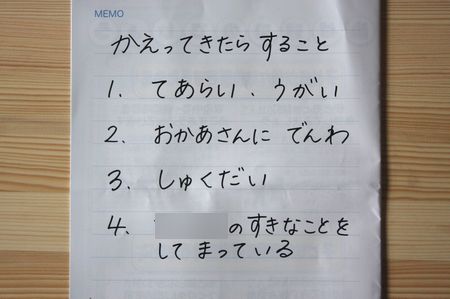 MEMO
かえってきたら すること
1. てあらい、うがい
2. おかあさんに でんわ
3. しゅくだい
4. のすきなことを
して まっている